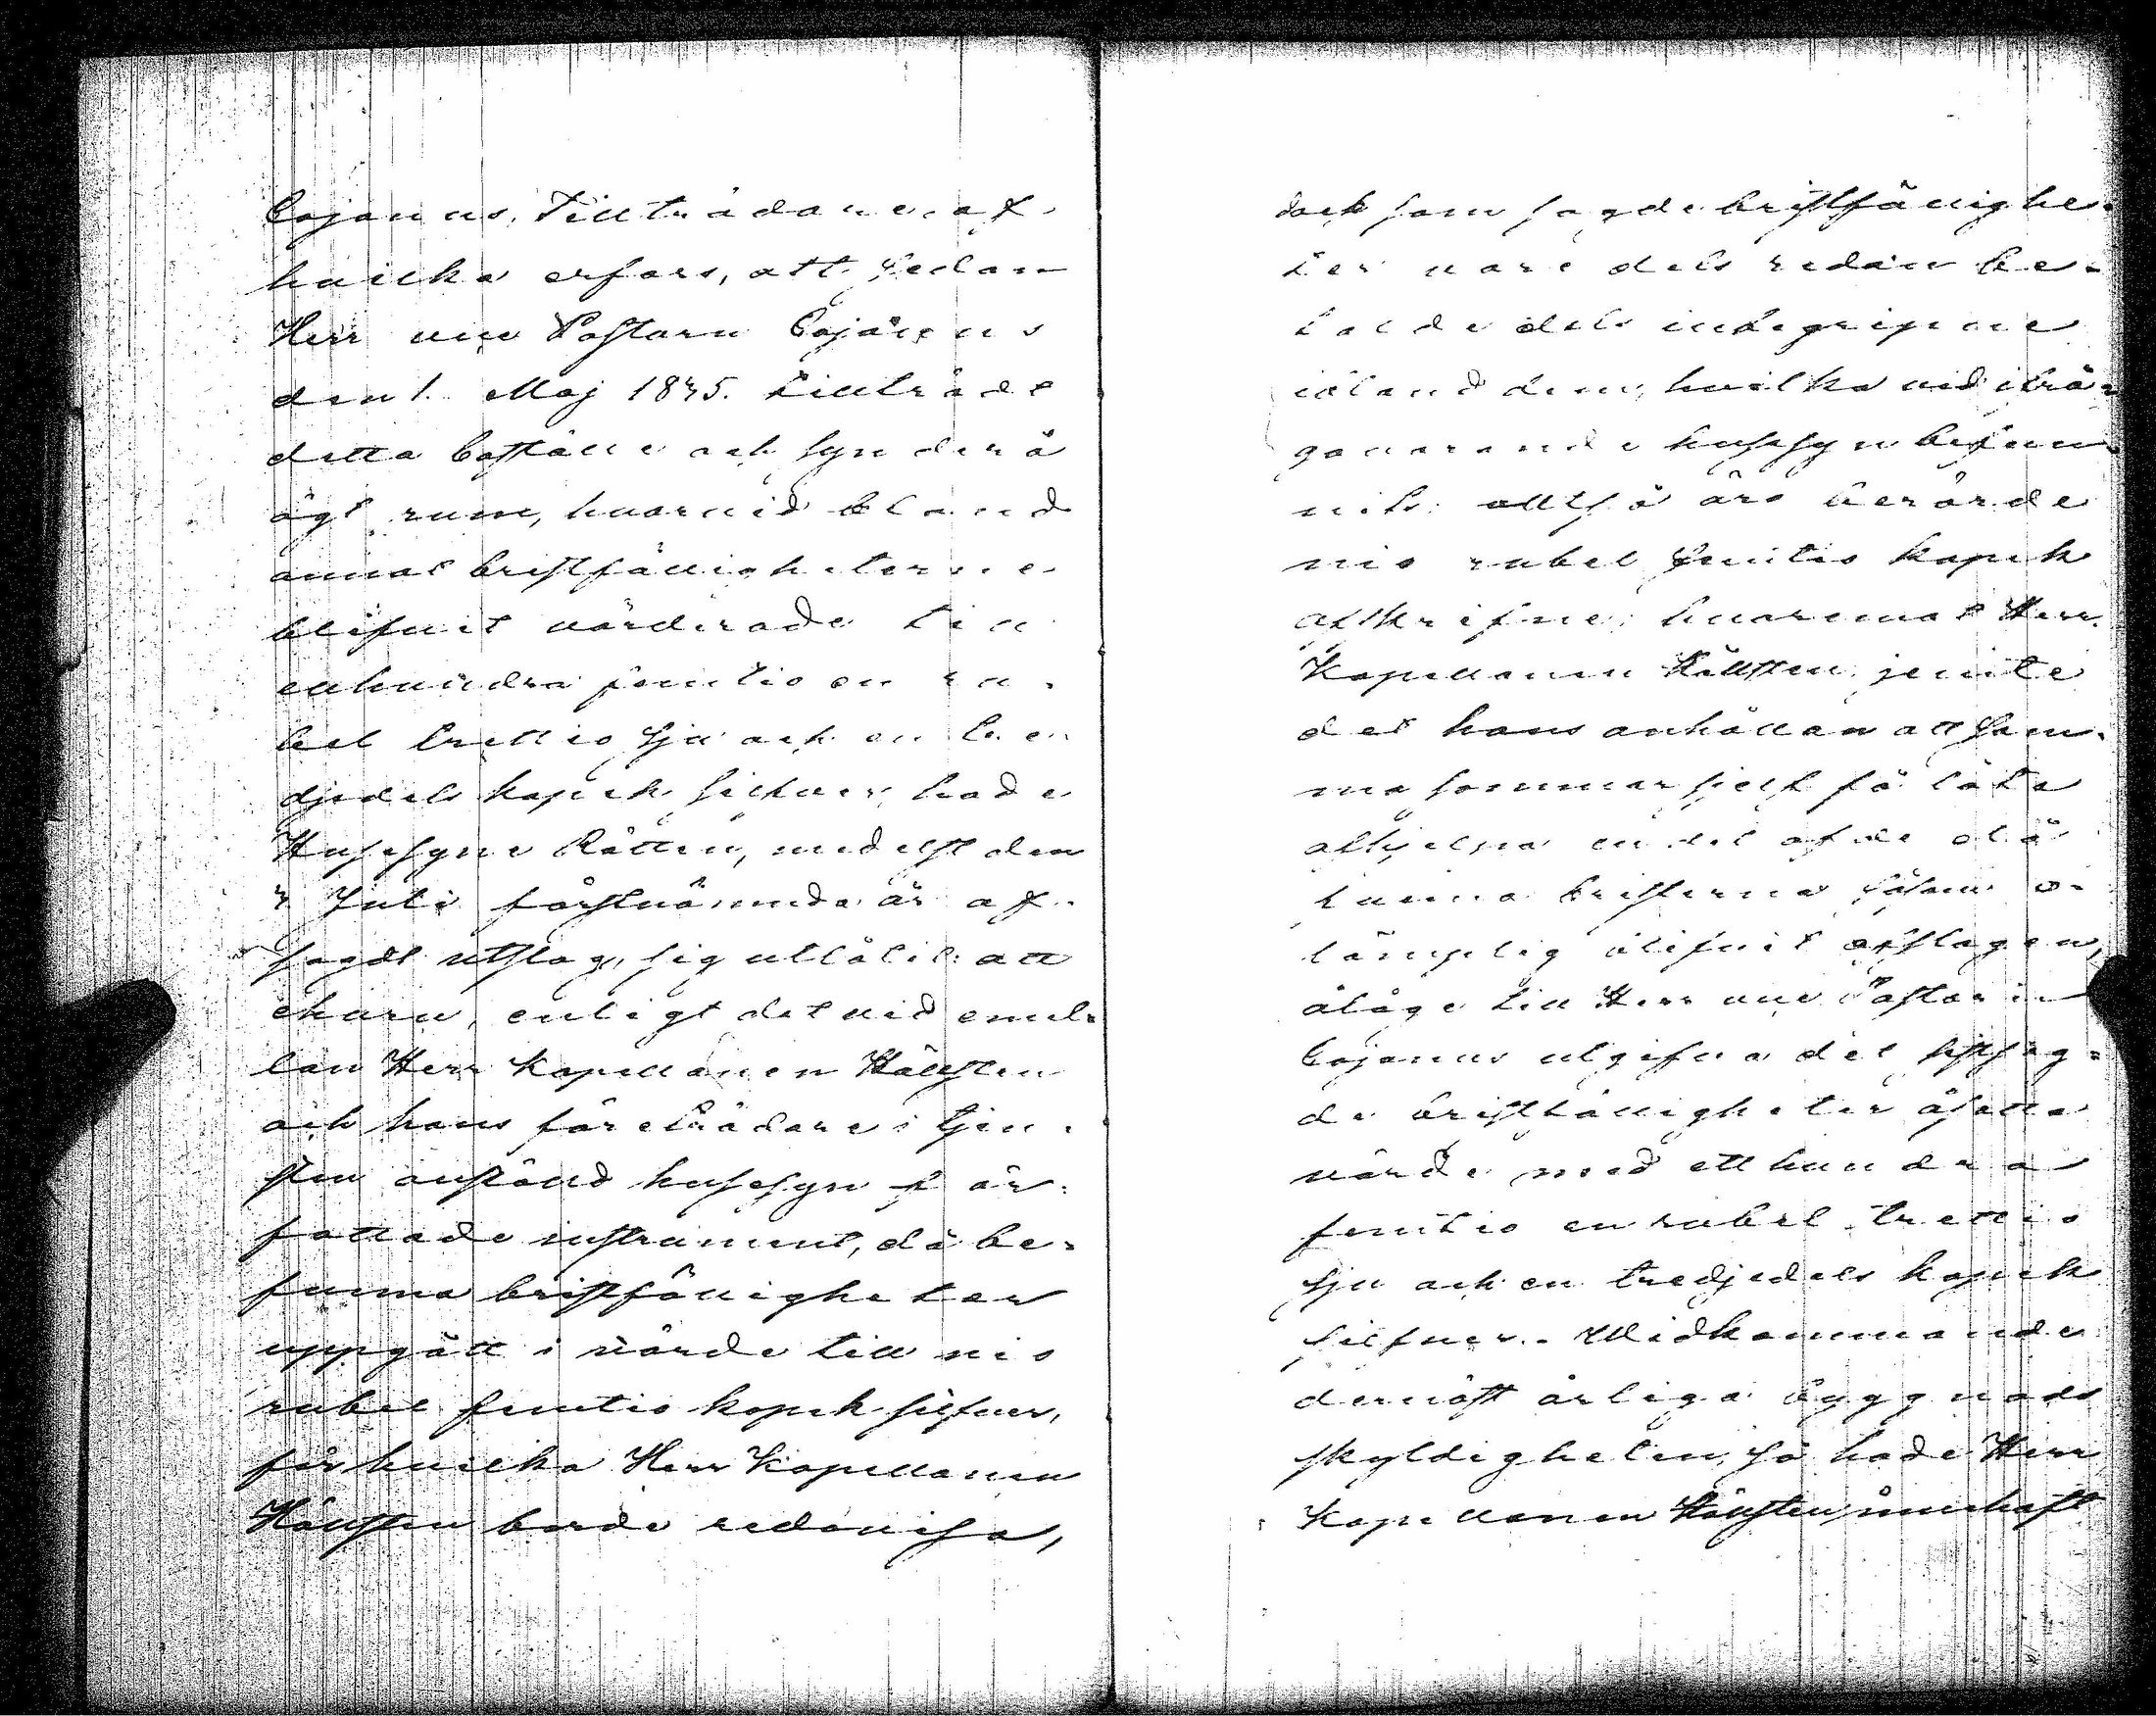 Cajanus. Tillträdane, af
hvilka erfors, att sedan
Herr vice Pastorn Cajanus
den 1. Maj 1835. tillträdt
detta boställe och syn derå
ägt rum, hvarvid bland
annat bristfälligheterne
blifvit värderade till
etthundra femtio en ru-
bel trettio sju och en tre-
djedels kopek silfver, hade
Husesyne Rätten, medelst den
2 Juli förstnämnda år af-
sagdt utslag, sig utlåtit: att
ehuru, enligt det vid emel-
lan Herr Kapellanen Hällsten
och hans företrädare i tjen-
sten anstäld husesyn f är-
fattade instrument, då be-
funna bristfälligheter
uppgått i värde till nio
rubel femtio kopek silfver,
för hvilka Herr Kapellanen
Hällsten borde redovisa,
dock som sagde bristfällighe-
ter vore dels redan be-
talde dels inbegripne
ibland dem, hvilka vid ifrå-
gavarande husesyn befun-
nits: alltså äro berörde
nio rubel femtio kopek
afskrifne; hvaremot Herr
Kapellanen Hällsten, jemte
det hans anhållan att sam-
ma sommar sjelf få låta
afhjelpa en del af de då
funna bristerna såsom o-
lämplig blifvit afslagen,
ålåge till Herr vice Pastorn
Cajanus utgifva det sistsag-
de bristfälligheter åsatta
värde med ett hundra
femtio en rubel trettio
sju och en tredjedels kopek
silfver. Widkommande
dernäst årliga byggnads
skyldigheten, så hade Herr
Kapellanen Hällsten innehaft